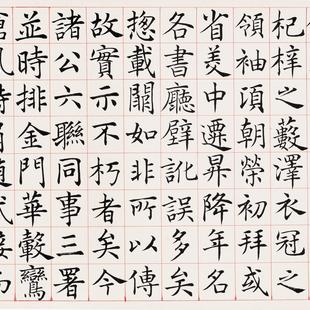 杞梓之藪澤衣冠之
領袖頃朝榮初拜或
省美中遷昇降年名
各書廳壁訛誤多矣
惣載闕如非所以傳
故實示不朽者矣今
諸公六聯同事三署
並時排金門華轂鸞